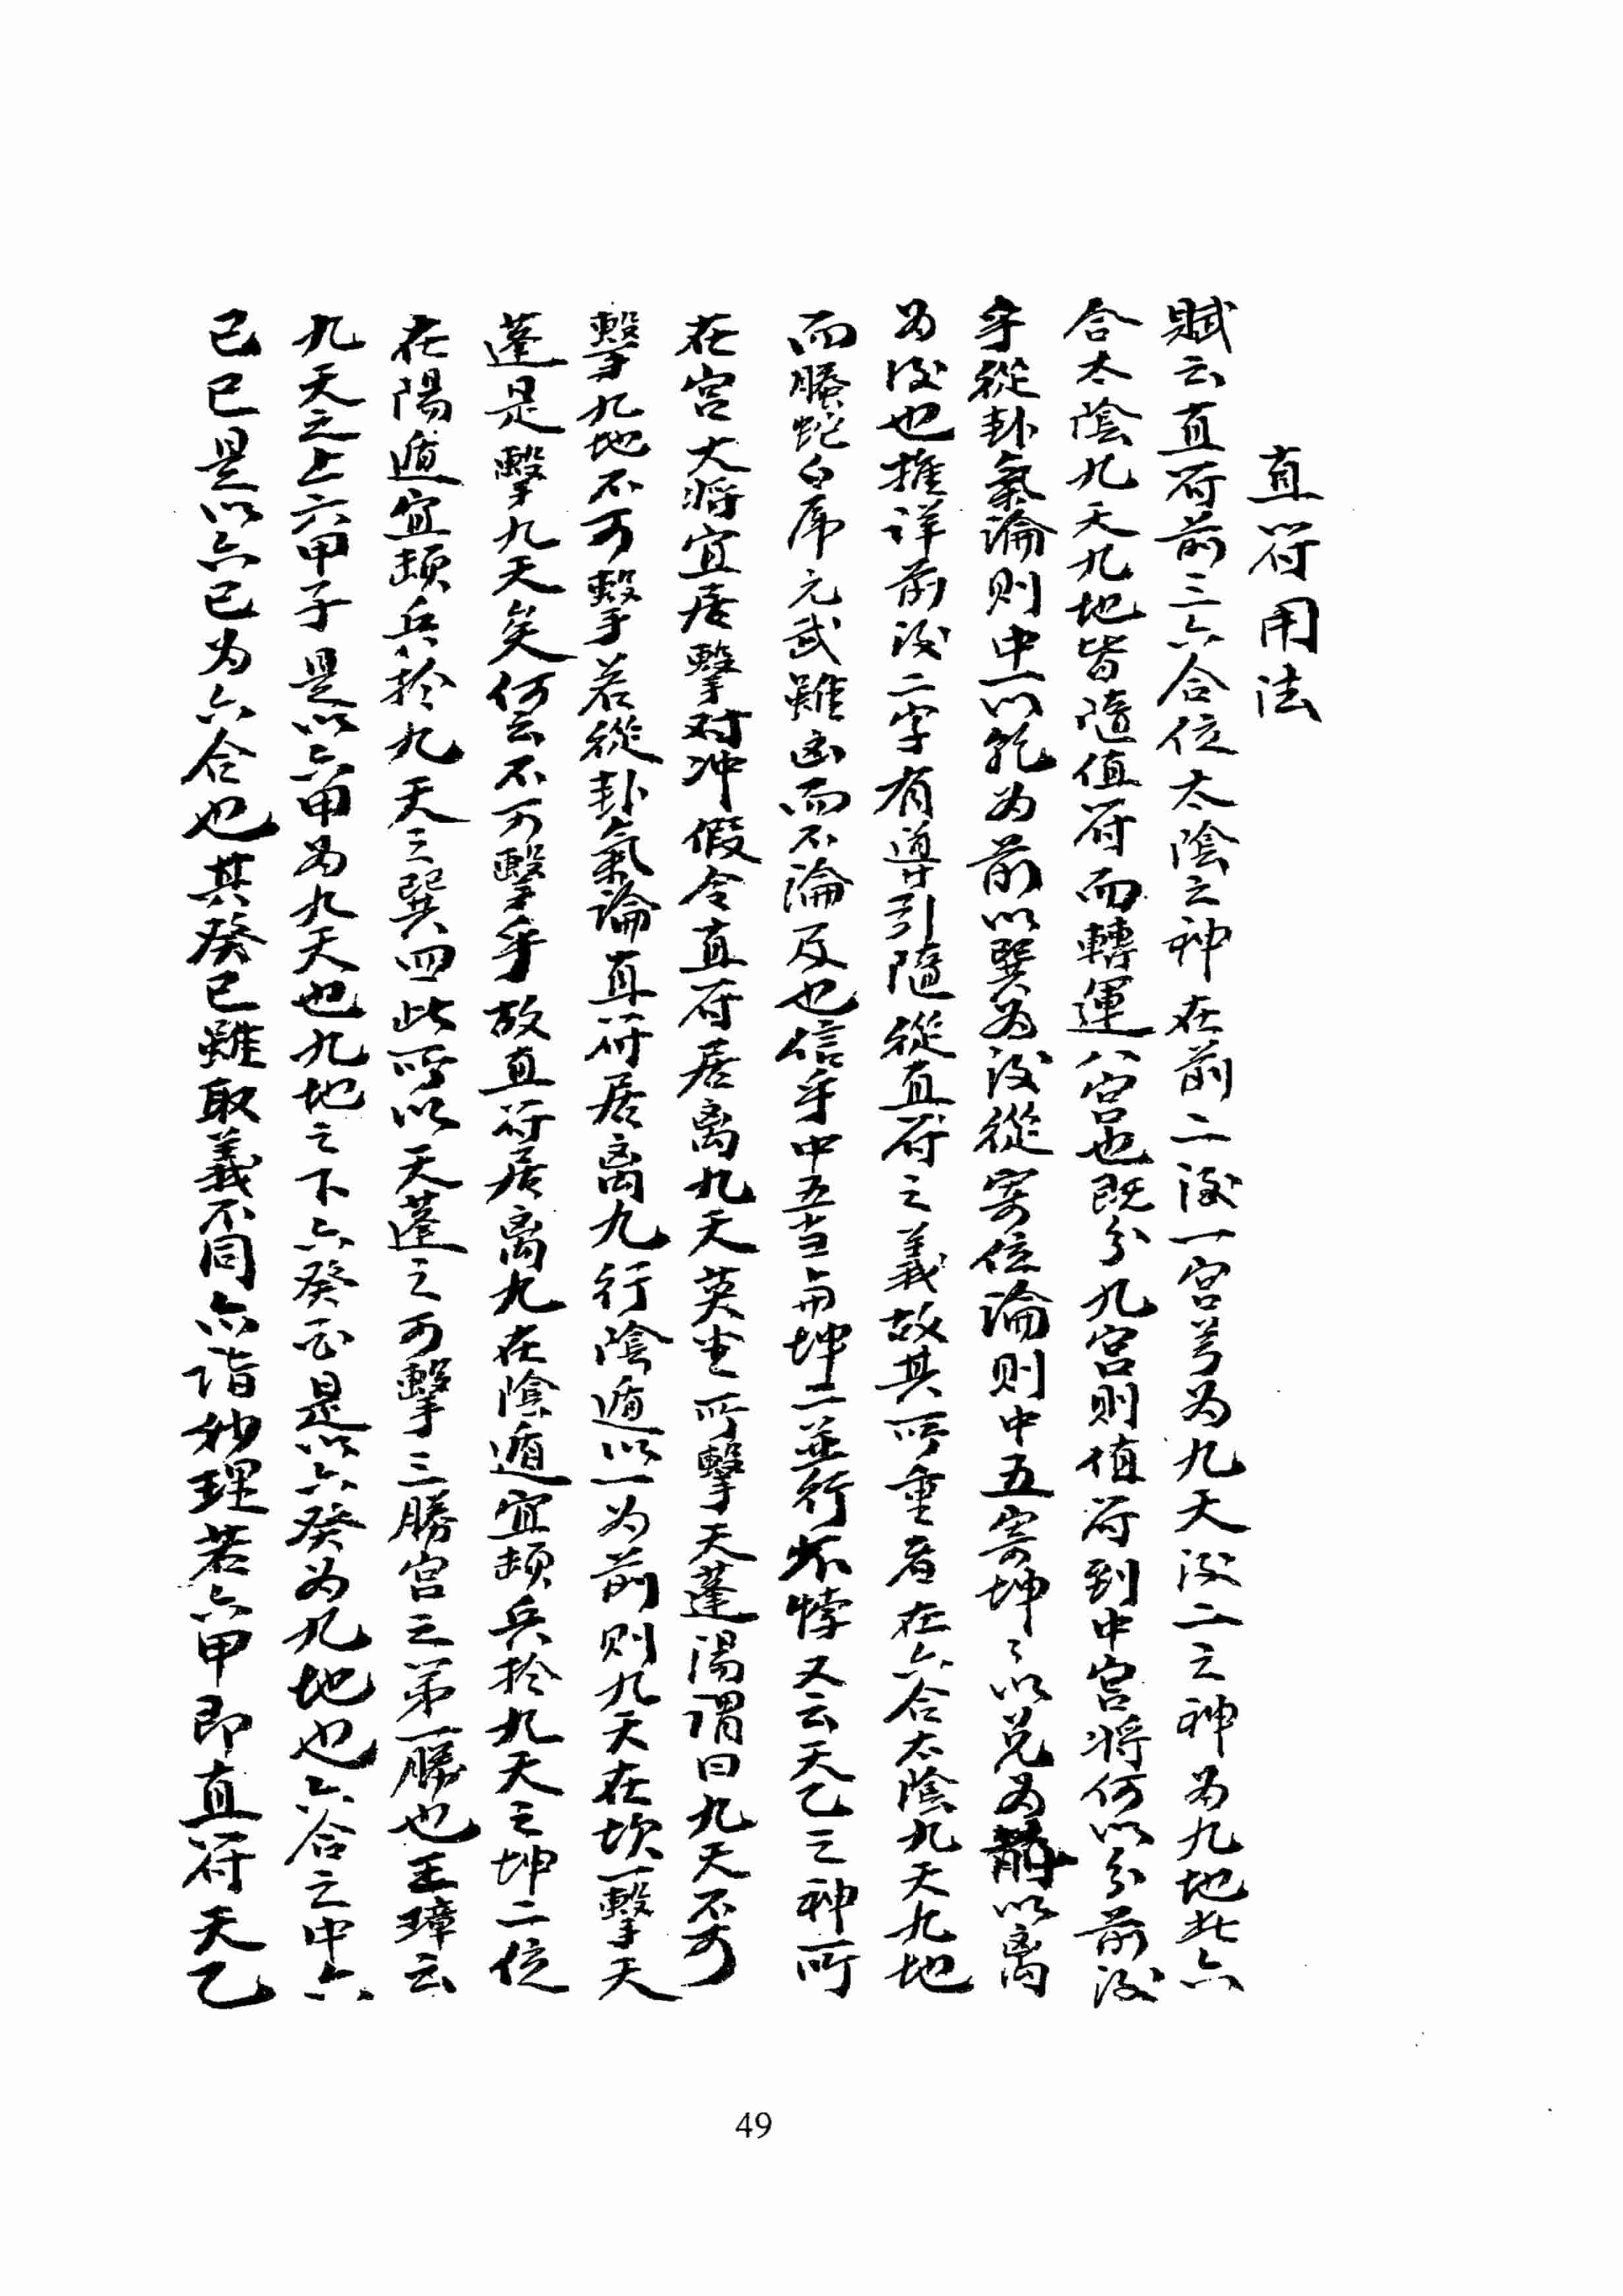 直符用法
賦云直符前三六合位太陰之神在前二後一宮兮为九天後二之神为九地此六
合太陰九天九地皆隨值符而轉運八宮也既分九宮則值符到中宮将何以分前後
乎從卦氣論则中以乾为前以巽为後從寄位論则中五寄坤〻以兑为前以离
为後也推详前後二字有導引隨從直符之義故其所重者在六合太陰九天九地
而螣蛇白虎元武雖凶而不論及也信乎中五当与坤二並行不悖又云天乙之神所
在宮大将宜居擊对冲假令直符居离九天英坐所擊天蓬湯谓曰九天不可
擊九地不可擊若從卦氣論直符居离九行陰遁以一为前则九天在坎一擊天
蓬是擊九天矣何云不可擊乎故直符居离九在陰遁宜頓兵扵九天之坤二位
在陽遁宜頓兵扵九天之巽四此所以天蓬之可擊三勝宮之第一勝也王璋云
九天之上六甲子是以六甲为九天也九地之下六癸酉是以六癸为九地也六合之中六
己巳是以六己为六合也其癸巳雖取義不同六诣妙理若六甲即直符天乙
49